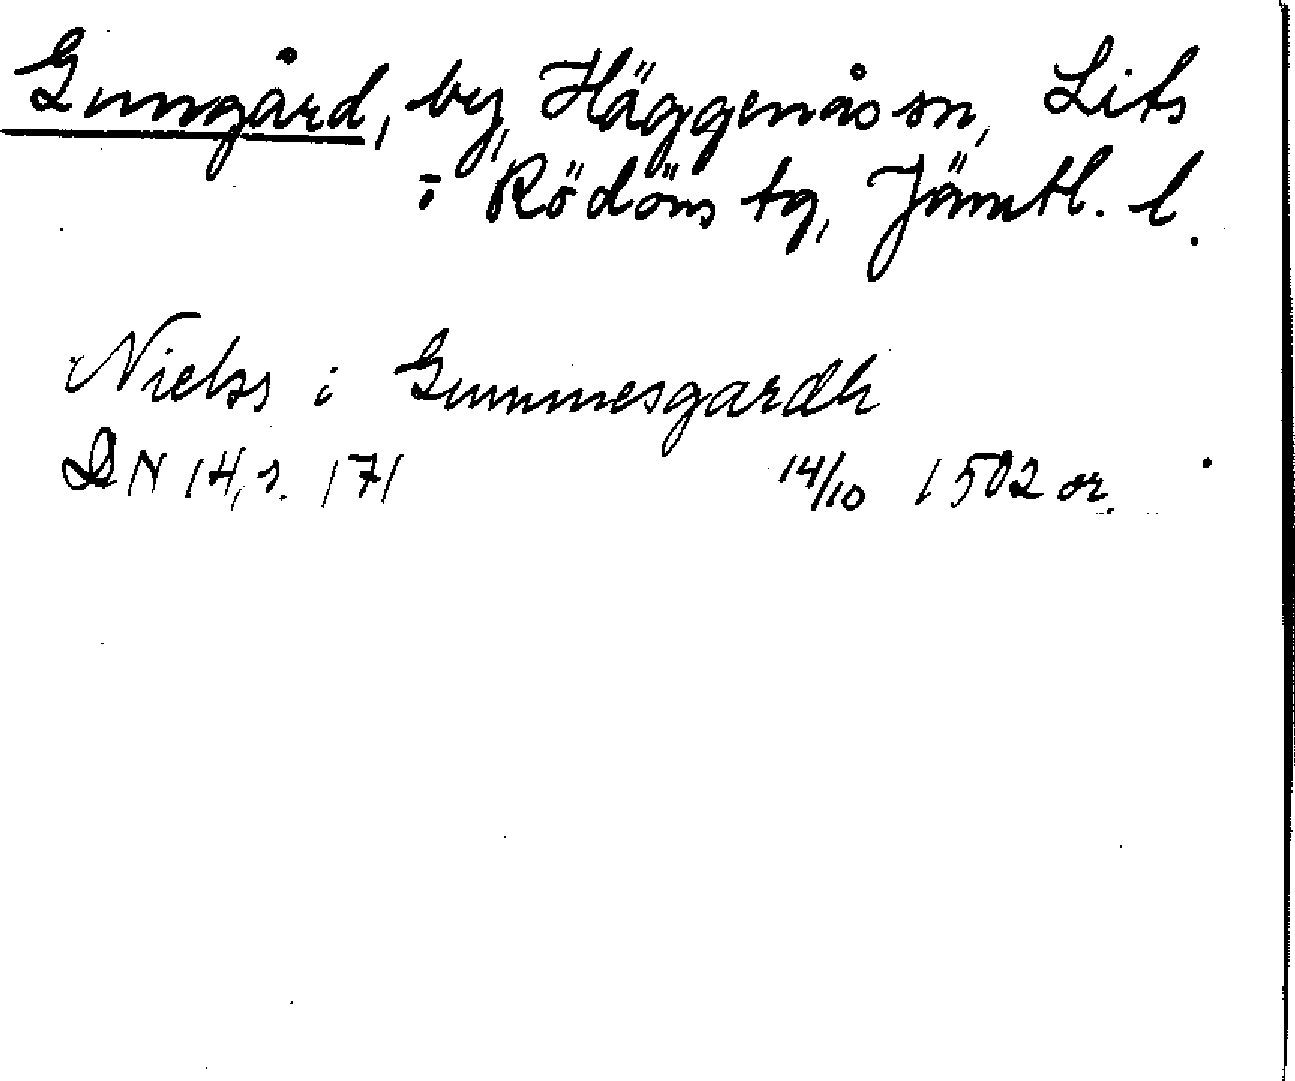 Gunngård, by, Häggenås sn, Lits
i Rödöns tg, Jämtl. l.
Nielss i Gunnnesgardh
DN 14, s. 171 14/10 1502 or.